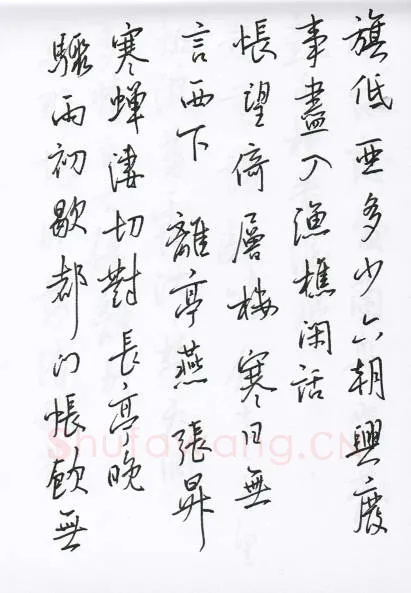 旗低亞多少六朝興廢
事盡入漁樵閑話
悵望倚層樓寒日無
言西下 離亭燕 張昇
寒蟬淒切對長亭晚
驟雨初歇都门帳飲無